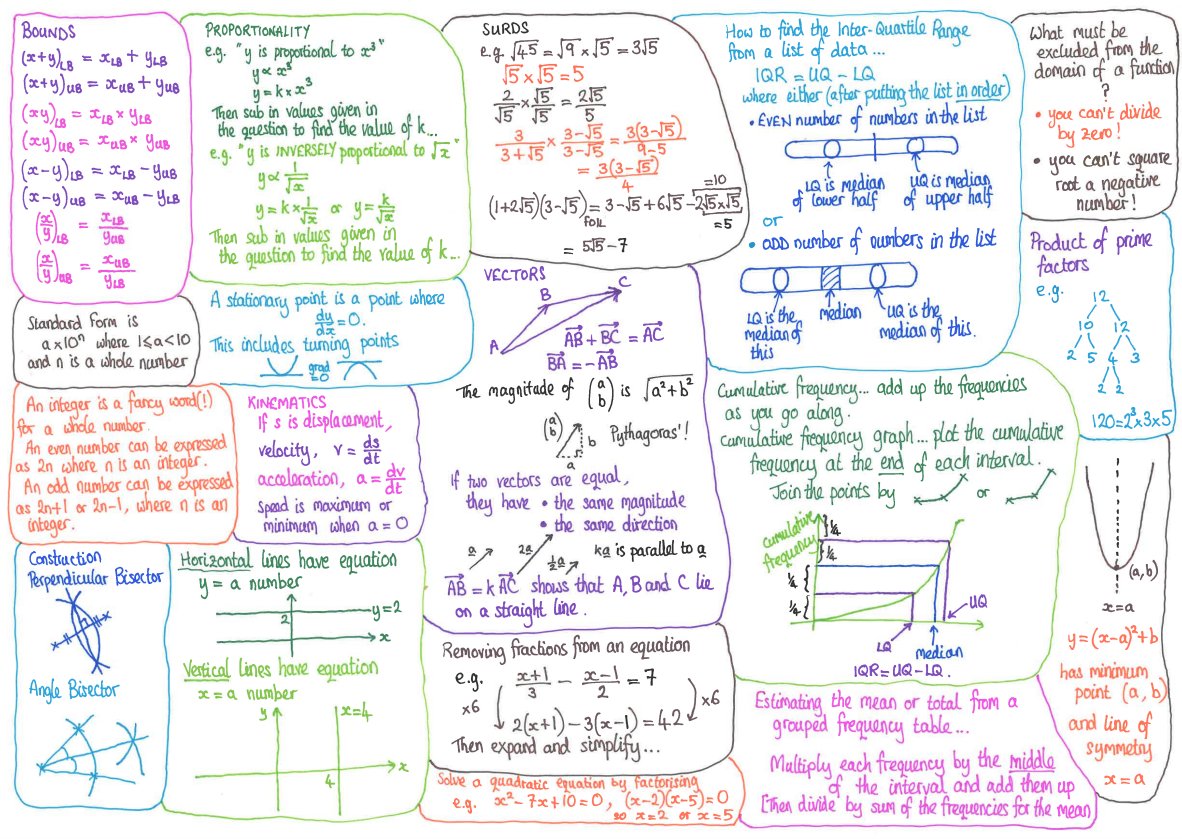 BOUNDS
(x+y)LB = xLB + yLB
(x+y)UB = xUB + yUB
(xy)LB = xLB × yLB
(xy)UB = xUB × yUB
(x−y)LB = xLB − yUB
(x−y)UB = xUB − yLB
(x/y)LB = xLB/yUB
(x/y)UB = xUB/yLB
PROPORTIONALITY
e.g. "y is proportional to x³"
y∝x³
y=k×x³
Then sub in values given in
the question to find the value of k...
e.g. "y is INVERSELY proportional to √x"
y∝ 1/√x
y=k×1/√x or y=k/√x
Then sub in values given in
the question to find the value of k...
SURDS
e.g. √45 = √9 × √5 = 3√5
√5 × √5 = 5
2/√5 × √5/√5 = 2√5/5
3/(3+√5) × (3−√5)/(3−√5) = 3(3−√5)/(9−5)
= 3(3−√5)/4
=10
(1+2√5)(3−√5) = 3−√5+6√5−2√5×√5
FOIL
=5
= 5√5−7
How to find the Inter-Quartile Range
from a list of data...
IQR = UQ − LQ
where either (after putting the list in order)
• EVEN number of numbers in the list
LQ is median of lower half
UQ is median of upper half
or
• ODD number of numbers in the list
LQ is the median of this
median
UQ is the median of this.
What must be
excluded from the
domain of a function
?
• you can't divide
by zero!
• you can't square
root a negative
number!
Standard Form is
a×10ⁿ where 1≤a<10
and n is a whole number
A stationary point is a point where
dy/dx = 0.
This includes turning points
grad
=0
VECTORS
A
B
C
AB + BC = AC
BA = −AB
The magnitude of (a b) is √a²+b²
(a b)
b
a
Pythagoras'!
If two vectors are equal,
they have • the same magnitude
• the same direction
a
2a
½a
ka is parallel to a
AB = k AC shows that A, B and C lie
on a straight line.
Product of prime
factors
e.g.
12
10 12
2 5 4 3
2 2
120=2³×3×5
An integer is a fancy word(!)
for a whole number.
An even number can be expressed
as 2n where n is an integer.
An odd number can be expressed
as 2n+1 or 2n−1, where n is an
integer.
KINEMATICS
If s is displacement,
velocity, v = ds/dt
acceleration, a = dv/dt
Speed is maximum or
minimum when a = 0
Cumulative frequency... add up the frequencies
as you go along.
Cumulative frequency graph... plot the cumulative
frequency at the end of each interval.
Join the points by or
cumulative
frequency
¼
¼
¼
¼
LQ
median
UQ
IQR=UQ−LQ.
(a,b)
x=a
y=(x−a)²+b
has minimum
point (a,b)
and line of
symmetry
x=a
Construction
Perpendicular Bisector
Angle Bisector
Horizontal lines have equation
y = a number
2
y=2
x
Vertical lines have equation
x = a number
y
x=4
x
4
Removing fractions from an equation
e.g. (x+1)/3 − (x−1)/2 = 7
×6
×6
2(x+1)−3(x−1)=42
Then expand and simplify...
Solve a quadratic equation by factorising
e.g. x²−7x+10=0, (x−2)(x−5)=0
so x=2 or x=5
Estimating the mean or total from a
grouped frequency table...
Multiply each frequency by the middle
of the interval and add them up
[Then divide by sum of the frequencies for the mean